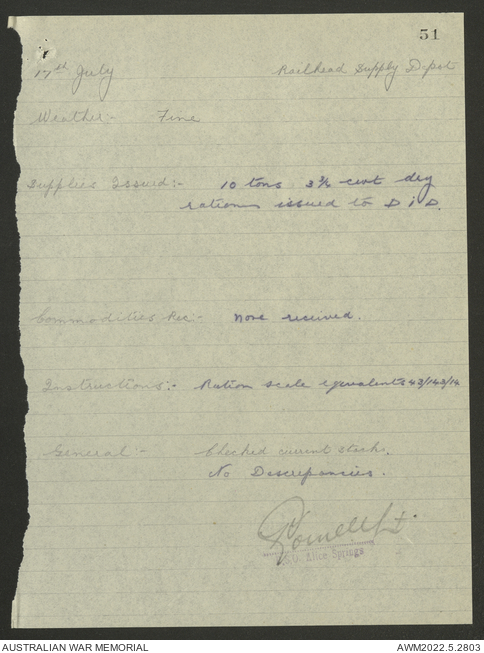 51
17th July Railhead Supply Depot
Weather - Fine
Supplies Issued:- 10 tons 3¾ cwt dry
rations issued to D.I.D.
Commodities Rec:- None received.
Instructions:- Ration scale equivalents 43/143/14
General:- Checked current stocks.
No Discrepancies.
Alice Springs
AUSTRALIAN WAR MEMORIAL
AWM2022.5.2803